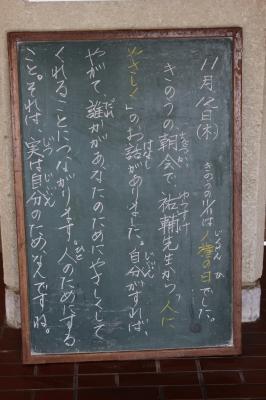 11月12日(木) きのうの11/11は人権の日でした。
きのうの朝会で、祐輔先生から、「人に
やさしく」のお話がありました。自分がすれば、
やがて、誰かがあなたのためにやさしくして
くれることにつながります。人のためにする
こと。それは、実は自分のためなんですね。